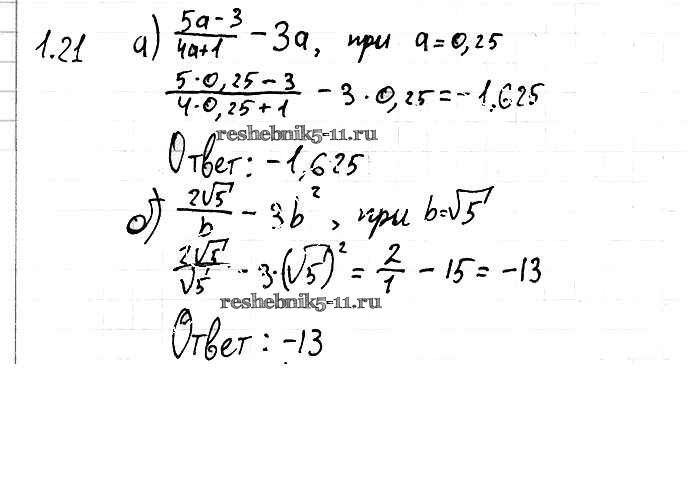 1.21 а) (5a-3)/(4a+1) - 3a, при a=0,25
(5·0,25-3)/(4·0,25+1) - 3·0,25=-1,625
reshebnik5-11.ru
Ответ: -1,625
б) 2√5/b - 3b², при b=√5
2√5/√5 - 3·(√5)² = 2/1 - 15 = -13
reshebnik5-11.ru
Ответ: -13